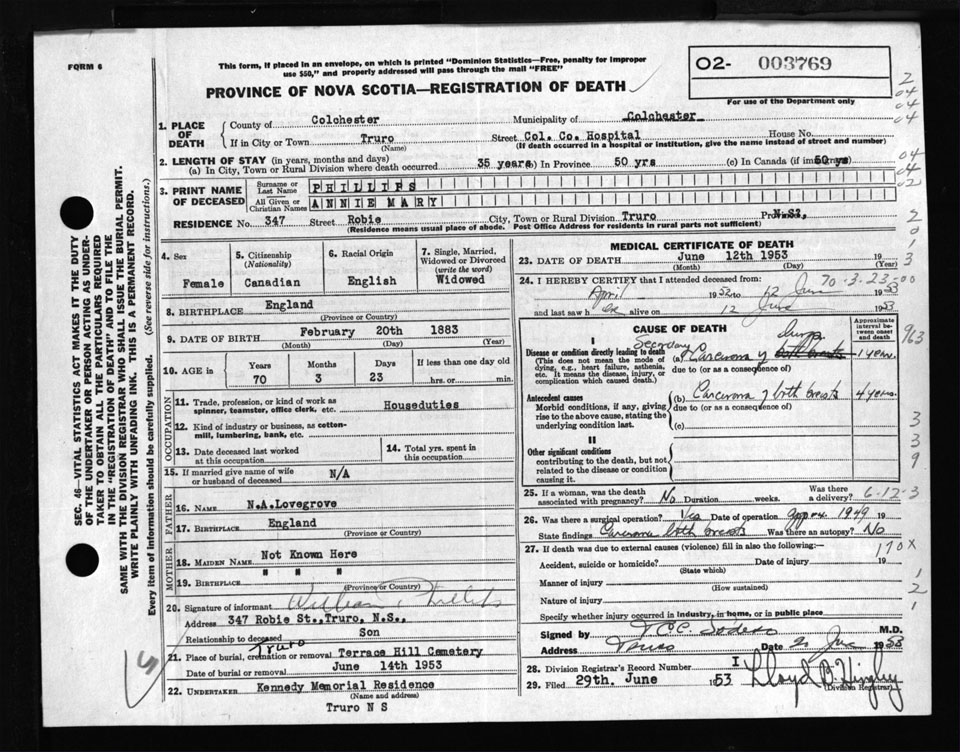 FORM 6
This form, if placed in an envelope, on which is printed "Dominion Statistics—Free, penalty for improper
use $50," and properly addressed will pass through the mail "FREE"
PROVINCE OF NOVA SCOTIA—REGISTRATION OF DEATH
02- 003769
For use of the Department only
1. PLACE OF DEATH
County of Colchester Municipality of Colchester
If in City or Town Truro Street Col. Co. Hospital House No.
(Name) (If death occurred in a hospital or institution, give the name instead of street and number)
2. LENGTH OF STAY (in years, months and days)
(a) In City, Town or Rural Division where death occurred 35 years (b) In Province 50 yrs (c) In Canada (if immigrant) 50 yrs
3. PRINT NAME OF DECEASED
Surname or Last Name PHILLIPS
All Given or Christian Names ANNIE MARY
RESIDENCE No. 347 Street Robie City, Town or Rural Division Truro Prov. N.S.
(Residence means usual place of abode. Post Office Address for residents in rural parts not sufficient)
4. Sex
Female
5. Citizenship
(Nationality)
Canadian
6. Racial Origin
English
7. Single, Married,
Widowed or Divorced
(write the word)
Widowed
8. BIRTHPLACE England
(Province or Country)
9. DATE OF BIRTH February 20th 1883
(Month) (Day) (Year)
10. AGE in
Years Months Days If less than one day old
70 3 23 hrs. or min.
OCCUPATION
11. Trade, profession, or kind of work as
spinner, teamster, office clerk, etc. Houseduties
12. Kind of industry or business, as cotton-
mill, lumbering, bank, etc.
13. Date deceased last worked
at this occupation
14. Total yrs. spent in
this occupation
15. If married give name of wife
or husband of deceased N/A
FATHER
16. Name N.A.Lovegrove
17. Birthplace England
(Province or Country)
MOTHER
18. Maiden Name Not Known Here
19. Birthplace " " "
(Province or Country)
20. Signature of informant William Phillips
Address 347 Robie St., Truro, N.S.,
Relationship to deceased Son
21. Place of burial, cremation or removal Truro Terrace Hill Cemetery
Date of burial or removal June 14th 1953
22. UNDERTAKER Kennedy Memorial Residence
(Name and address)
Truro N S
MEDICAL CERTIFICATE OF DEATH
23. DATE OF DEATH June 12th 1953 19
(Month) (Day) (Year)
24. I HEREBY CERTIFY that I attended deceased from: 70-3-23-00
April 1953 to 12 June 1953
and last saw h er alive on 12 June 1953
CAUSE OF DEATH
Approximate
interval be-
tween onset
and death
I
Disease or condition directly leading to death
(This does not mean the mode of
dying, e.g., heart failure, asthenia,
etc. It means the disease, injury, or
complication which caused death.)
(a) Secondary Carcinoma of lungs 1 year.
due to (or as a consequence of)
Antecedent causes
Morbid conditions, if any, giving
rise to the above cause, stating the
underlying condition last.
(b) Carcinoma of both breasts 4 years.
due to (or as a consequence of)
(c)
II
Other significant conditions
contributing to the death, but not
related to the disease or condition
causing it.
25. If a woman, was the death
associated with pregnancy? No Duration weeks. Was there
a delivery? 6-12-3
26. Was there a surgical operation? Yes Date of operation 1949 19
State findings Carcinoma both breasts Was there an autopsy? No
27. If death was due to external causes (violence) fill in also the following:— 170X
Accident, suicide or homicide? Date of injury 19
(State which)
Manner of injury
(How sustained)
Nature of injury
Specify whether injury occurred in industry, in home, or in public place
Signed by M.D.
Address Truro Date June 1953
28. Division Registrar's Record Number I
29. Filed 29th. June 1953 Lloyd B.
(Division Registrar)
SEC. 46—VITAL STATISTICS ACT MAKES IT THE DUTY
OF THE UNDERTAKER OR PERSON ACTING AS UNDER-
TAKER TO OBTAIN ALL THE PARTICULARS REQUIRED
IN THE "REGISTRATION OF DEATH" AND TO FILE THE
SAME WITH THE DIVISION REGISTRAR WHO SHALL ISSUE THE BURIAL PERMIT.
WRITE PLAINLY WITH UNFADING INK. THIS IS A PERMANENT RECORD.
Every item of information should be carefully supplied. (See reverse side for instructions.)
2
04
04
04
04
04
02
2
0
1
3
963
3
3
9
1
2
1